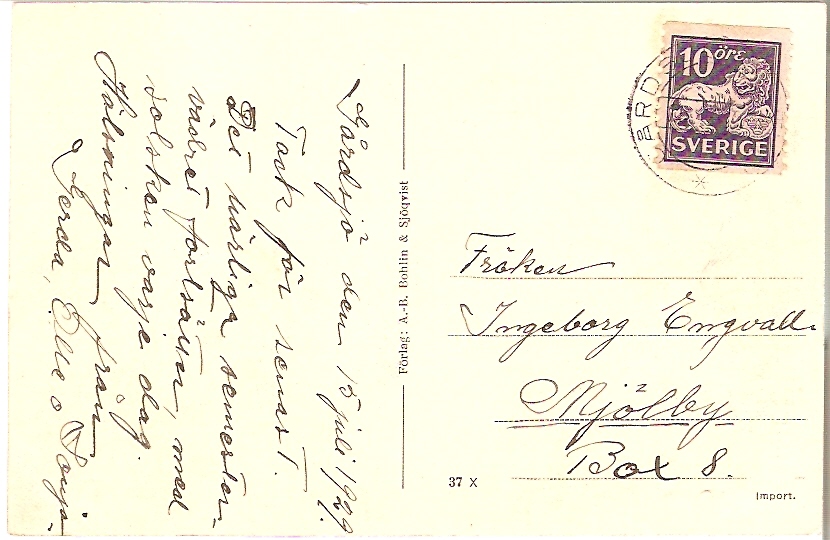 Gårdsjö den 15 juli 1929.
Tack för senast.
Det härliga semester-
vädret fortsätter, med
solsken varje dag.
Hälsningar från
Gerda, Elle o Tanja.
Förlag: A.-B. Bohlin & Sjöqvist
10 öre
SVERIGE
Fröken
Ingeborg Engvall.
Mjölby
Box 8.
37 X
Import.